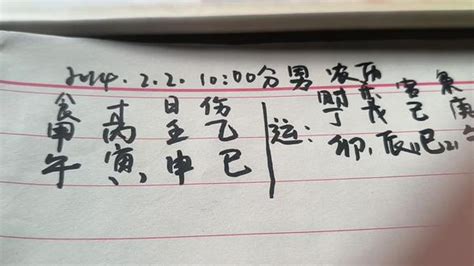 2014.2.2.10:00分男
食 才 日 伤
甲 丙 壬 乙
午 寅 申 巳
运:
财 杀 官 枭
丁 戊 己 庚
卯、辰、巳